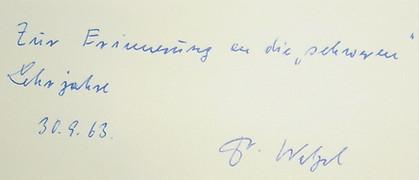 Zur Erinnerung an die „schweren“
Lehrjahre
30.9.63.
Fr. Wetzel